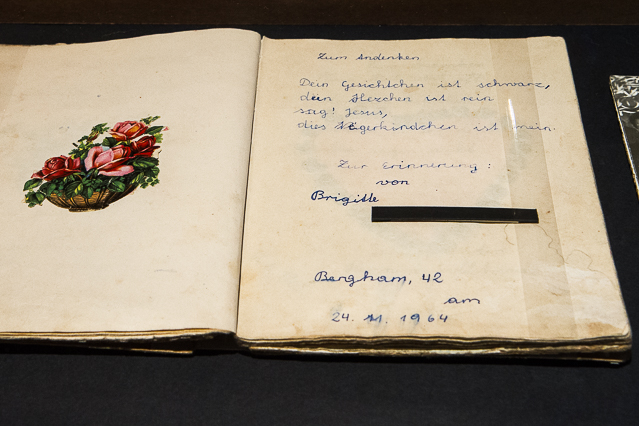 Zum Andenken
Dein Gesichtchen ist schwarz,
dein Herzchen ist rein
sag! Jesus,
dies Negerkindchen ist mein.
Zur Erinnerung:
von
Brigitte
Bergham, 42
am
24. 11. 1964